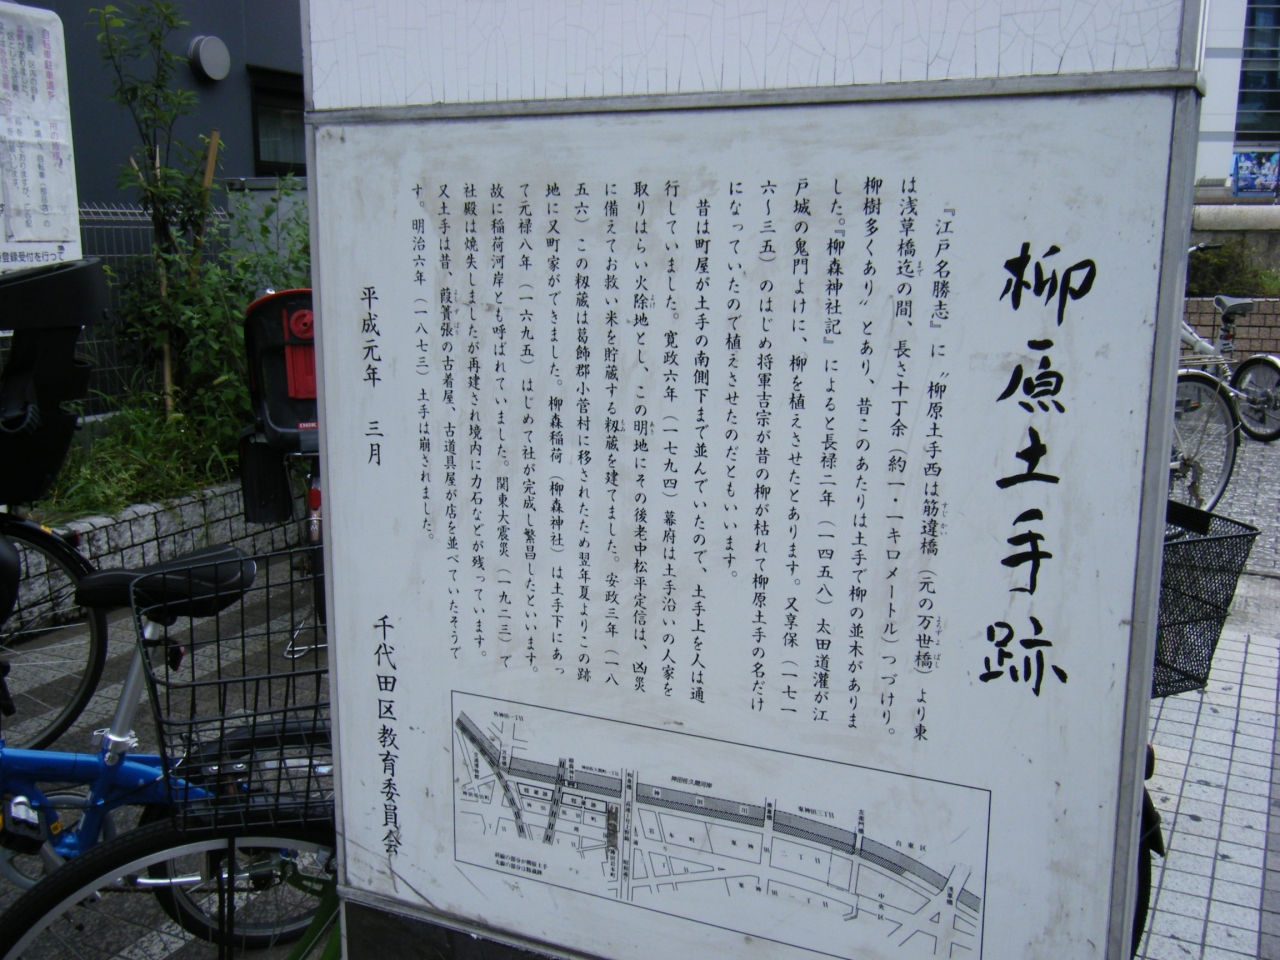 柳原土手跡
『江戸名勝志』に〝柳原土手西は筋違橋（元の万世橋）より東
は浅草橋迄の間、長さ十丁余（約一・一キロメートル）つづけり。
柳樹多くあり〟とあり、昔このあたりは土手で柳の並木がありま
した。『柳森神社記』によると長禄二年（一四五八）太田道灌が江
戸城の鬼門よけに、柳を植えさせたとあります。又享保（一七一
六〜三五）のはじめ将軍吉宗が昔の柳が枯れて柳原土手の名だけ
になっていたので植えさせたのだともいいます。
昔は町屋が土手の南側下まで並んでいたので、土手上を人は通
行していました。寛政六年（一七九四）幕府は土手沿いの人家を
取りはらい火除地とし、この明地にその後老中松平定信は、凶災
に備えてお救い米を貯蔵する籾蔵を建てました。安政三年（一八
五六）この籾蔵は葛飾郡小菅村に移されたため翌年夏よりこの跡
地に又町家ができました。柳森稲荷（柳森神社）は土手下にあっ
て元禄八年（一六九五）はじめて社が完成し繁昌したといいます。
故に稲荷河岸とも呼ばれていました。関東大震災（一九二三）で
社殿は焼失しましたが再建され境内に力石などが残っています。
又土手は昔、葭簀張の古着屋、古道具屋が店を並べていたそうで
す。明治六年（一八七三）土手は崩されました。
平成元年 三月
千代田区教育委員会
神田佐久間河岸
神田川
東神田三丁目
台東区
東神田二丁目
東神田一丁目
中央区
浅草橋